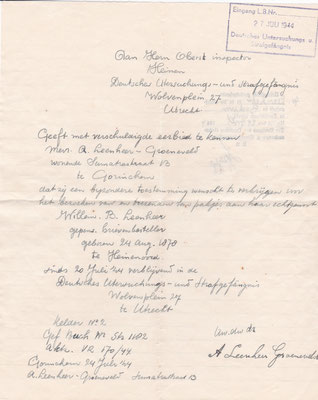 Eingang L.S.Nr.
27 JULI 1944
Deutsches Untersuchungs- u.
Strafgefängnis
Aan Hern Oberst inspector
Heinen
Deutsches Untersuchungs- und Strafgefängnis
Wolvenplein 27
Utrecht
Geeft met verschuldigde eerbied te kennen
Mevr. A. Leenheer-Groeneveld
wonende Sumatrastraat 13
te Gorinchem
dat zij een bijzondere toestemming wenscht te verkrijgen voor
het van pakje aan haar echtgenoot
Willem. B. Leenheer
gepens. brievenbesteller
geboren 24 Aug. 1878
te Heinenoord.
sinds 20 Juli '44 verblijvend in de
Deutsches Untersuchungs- und Strafgefängnis
Wolvenplein 27
te Utrecht
Kelder No 2
Gef. Buch No
Akt. VR 170/44
Gorinchem 24 Juli '44
A. Leenheer-Groeneveld Sumatrastraat 13
A Leenheer Groeneveld